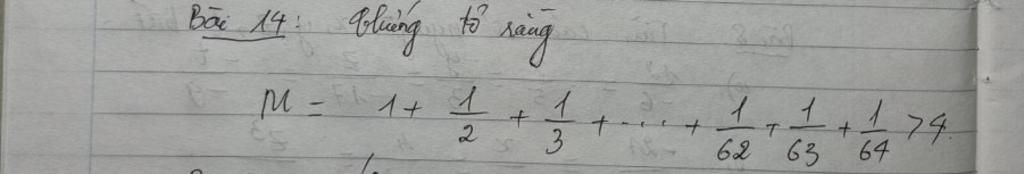 Bài 14: Chứng tỏ rằng
M = 1 + 1/2 + 1/3 + ... + 1/62 + 1/63 + 1/64 > 4.